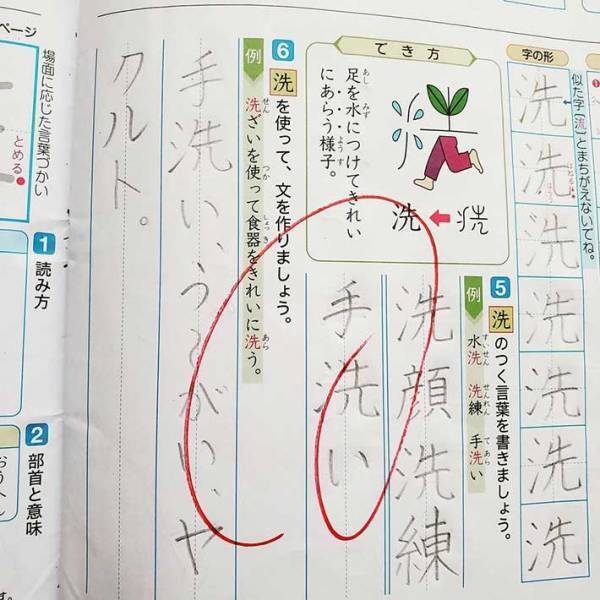 字の形
似た字〔流〕とまちがえないでね。
洗
洗
洗
洗
洗
洗
洗
でき方
足を水につけてきれい
にあらう様子。
洗
5 洗のつく言葉を書きましょう。
例 水洗 洗練 手洗い
洗顔 洗練
手洗い
6 洗を使って、文を作りましょう。
例 洗ざいを使って食器をきれいに洗う。
手洗い、うがい、ヤ
クルト。
ページ
場面に応じた言葉づかい
とめる
1 読み方
2 部首と意味